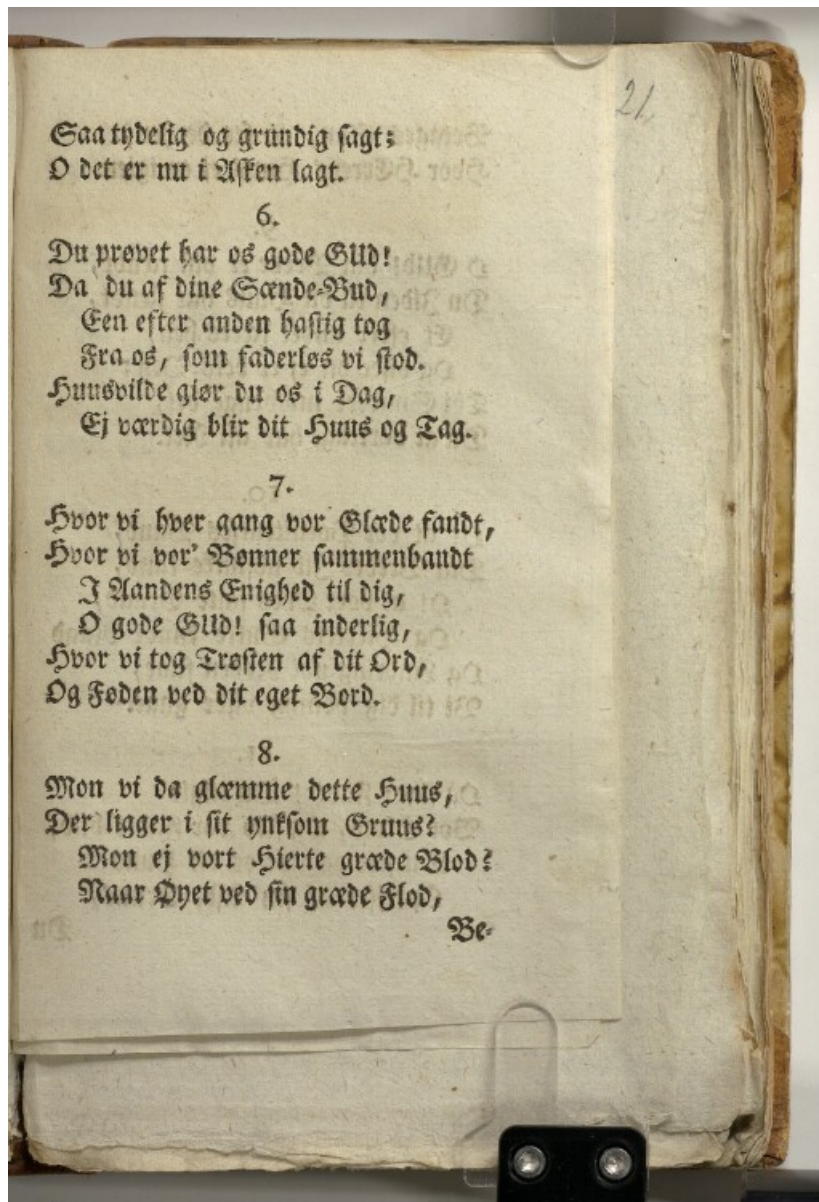 21.
Saa tydelig og grundig sagt;
O det er nu i Asken lagt.
6.
Du prøvet har os gode GUd!
Da du af dine Sænde-Bud,
Een efter anden hastig tog
Fra os, som faderløs vi stod.
Huusvilde giør du os i Dag,
Ej værdig blir dit Huus og Tag.
7.
Hvor vi hver gang vor Glæde fandt,
Hvor vi vor' Bønner sammenbandt
I Aandens Enighed til dig,
O gode GUd! saa inderlig,
Hvor vi tog Trøsten af dit Ord,
Og Føden ved dit eget Bord.
8.
Mon vi da glæmme dette Huus,
Der ligger i sit ynksom Gruus?
Mon ej vort Hierte græde Blod?
Naar Øyet ved sin græde Flod,
Be-